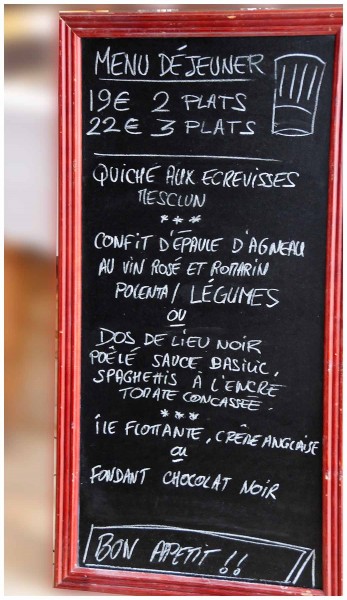 MENU DÉJEUNER
19€ 2 PLATS
22€ 3 PLATS
QUICHÉ AUX ECREVISSES
MESCLUN
***
CONFIT D'ÉPAULE D'AGNEAU
AU VIN ROSÉ ET ROMARIN
POLENTA / LÉGUMES
OU
DOS DE LIEU NOIR
POÊLÉ SAUCE BASILIC.
SPAGHETTIS À L'ENCRE
TOMATE CONCASSEE.
***
ÎLE FLOTTANTE, CRÊME ANGLAISE
OU
FONDANT CHOCOLAT NOIR
BON APPETIT !!